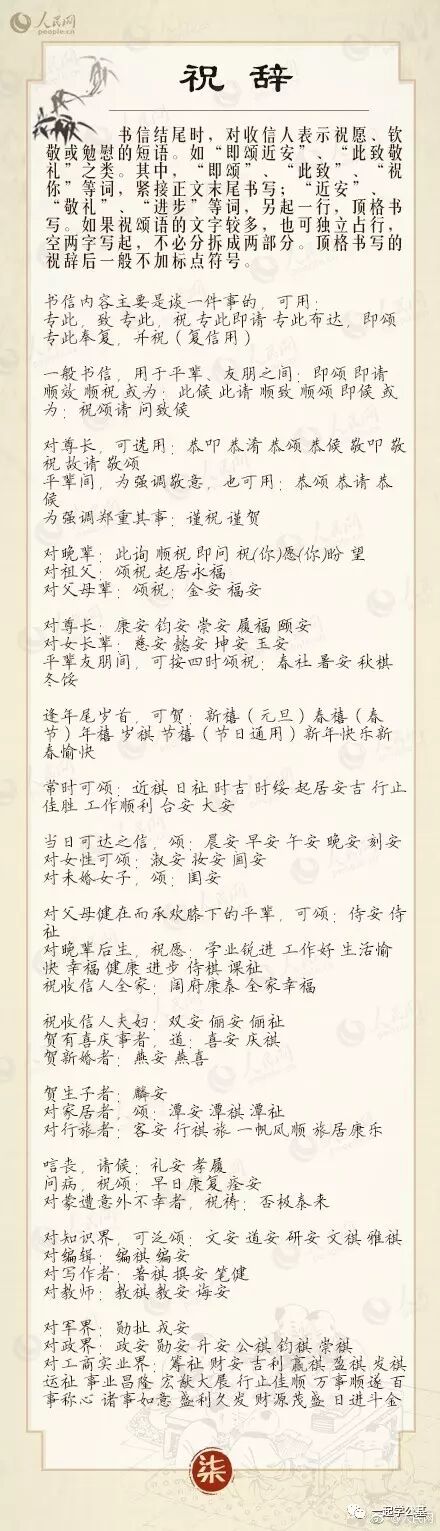 人民网
people.cn
祝辞
书信结尾时，对收信人表示祝愿、钦
敬或勉慰的短语。如“即颂近安”、“此致敬
礼”之类。其中，“即颂”、“此致”、“祝
你”等词，紧接正文末尾书写；“近安”、
“敬礼”、“进步”等词，另起一行，顶格书
写。如果祝颂语的文字较多，也可独立占行，
空两字写起，不必分拆成两部分。顶格书写的
祝辞后一般不加标点符号。
书信内容主要是谈一件事的，可用：
专此，致 专此，祝 专此即请 专此布达，即颂
专此奉复，并祝（复信用）
一般书信，用于平辈、友朋之间：即颂 即请
顺效 顺祝 或为：此候 此请 顺致 顺颂 即候 或
为：祝颂请 问致候
对尊长，可选用：恭叩 恭淆 恭颂 恭候 敬叩 敬
祝 故请 敬颂
平辈间，为强调敬意，也可用：恭颂 恭请 恭
候
为强调郑重其事：谨祝 谨贺
对晚辈：此询 顺祝 即问 祝(你)愿(你)盼 望
对祖父：颂祝 起居永福
对父母辈：颂祝：金安 福安
对尊长：康安 钧安 崇安 履福 颐安
对女长辈：慈安 懿安 坤安 玉安
平辈友朋间，可按四时颂祝：春社 暑安 秋棋
冬馁
逢年尾岁首，可贺：新禧（元旦）春禧（春
节）年禧 岁祺 节禧（节日通用）新年快乐新
春愉快
常时可颂：近祺 日祉 时吉 时绥 起居安吉 行止
佳胜 工作顺利 台安 大安
当日可达之信，颂：晨安 早安 午安 晚安 刻安
对女性可颂：淑安 妆安 阃安
对未婚女子，颂：闺安
对父母健在而承欢膝下的平辈，可颂：侍安 侍
祉
对晚辈后生，祝愿：学业锐进 工作好 生活愉
快 幸福 健康 进步 侍棋 课祉
祝收信人全家：阔府康泰 全家幸福
祝收信人夫妇：双安 俪安 俪祉
贺有喜庆事者，道：喜安 庆祺
贺新婚者：燕安 燕喜
贺生子者：麟安
对家居者，颂：潭安 潭祺 潭祉
对行旅者：客安 行祺 旅 一帆风顺 旅居康乐
唁丧，请候：礼安 孝履
问病，祝颂：早日康复 痊安
对蒙遭意外不幸者，祝祷：否极泰来
对知识界，可泛颂：文安 道安 研安 文祺 雅祺
对编辑：编祺 编安
对写作者：著祺 撰安 笔健
对教师：教祺 教安 诲安
对军界：勋扯 戎安
对政界：政安 勋安 升安 公祺 钧祺 崇祺
对工商实业界：筹祉 财安 吉利 赢祺 盈祺 发祺
运祉 事业昌隆 宏猷大展 行止佳顺 万事顺遂 百
事称心 诸事如意 盛利久发 财源茂盛 日进斗金
柒
一起学公基